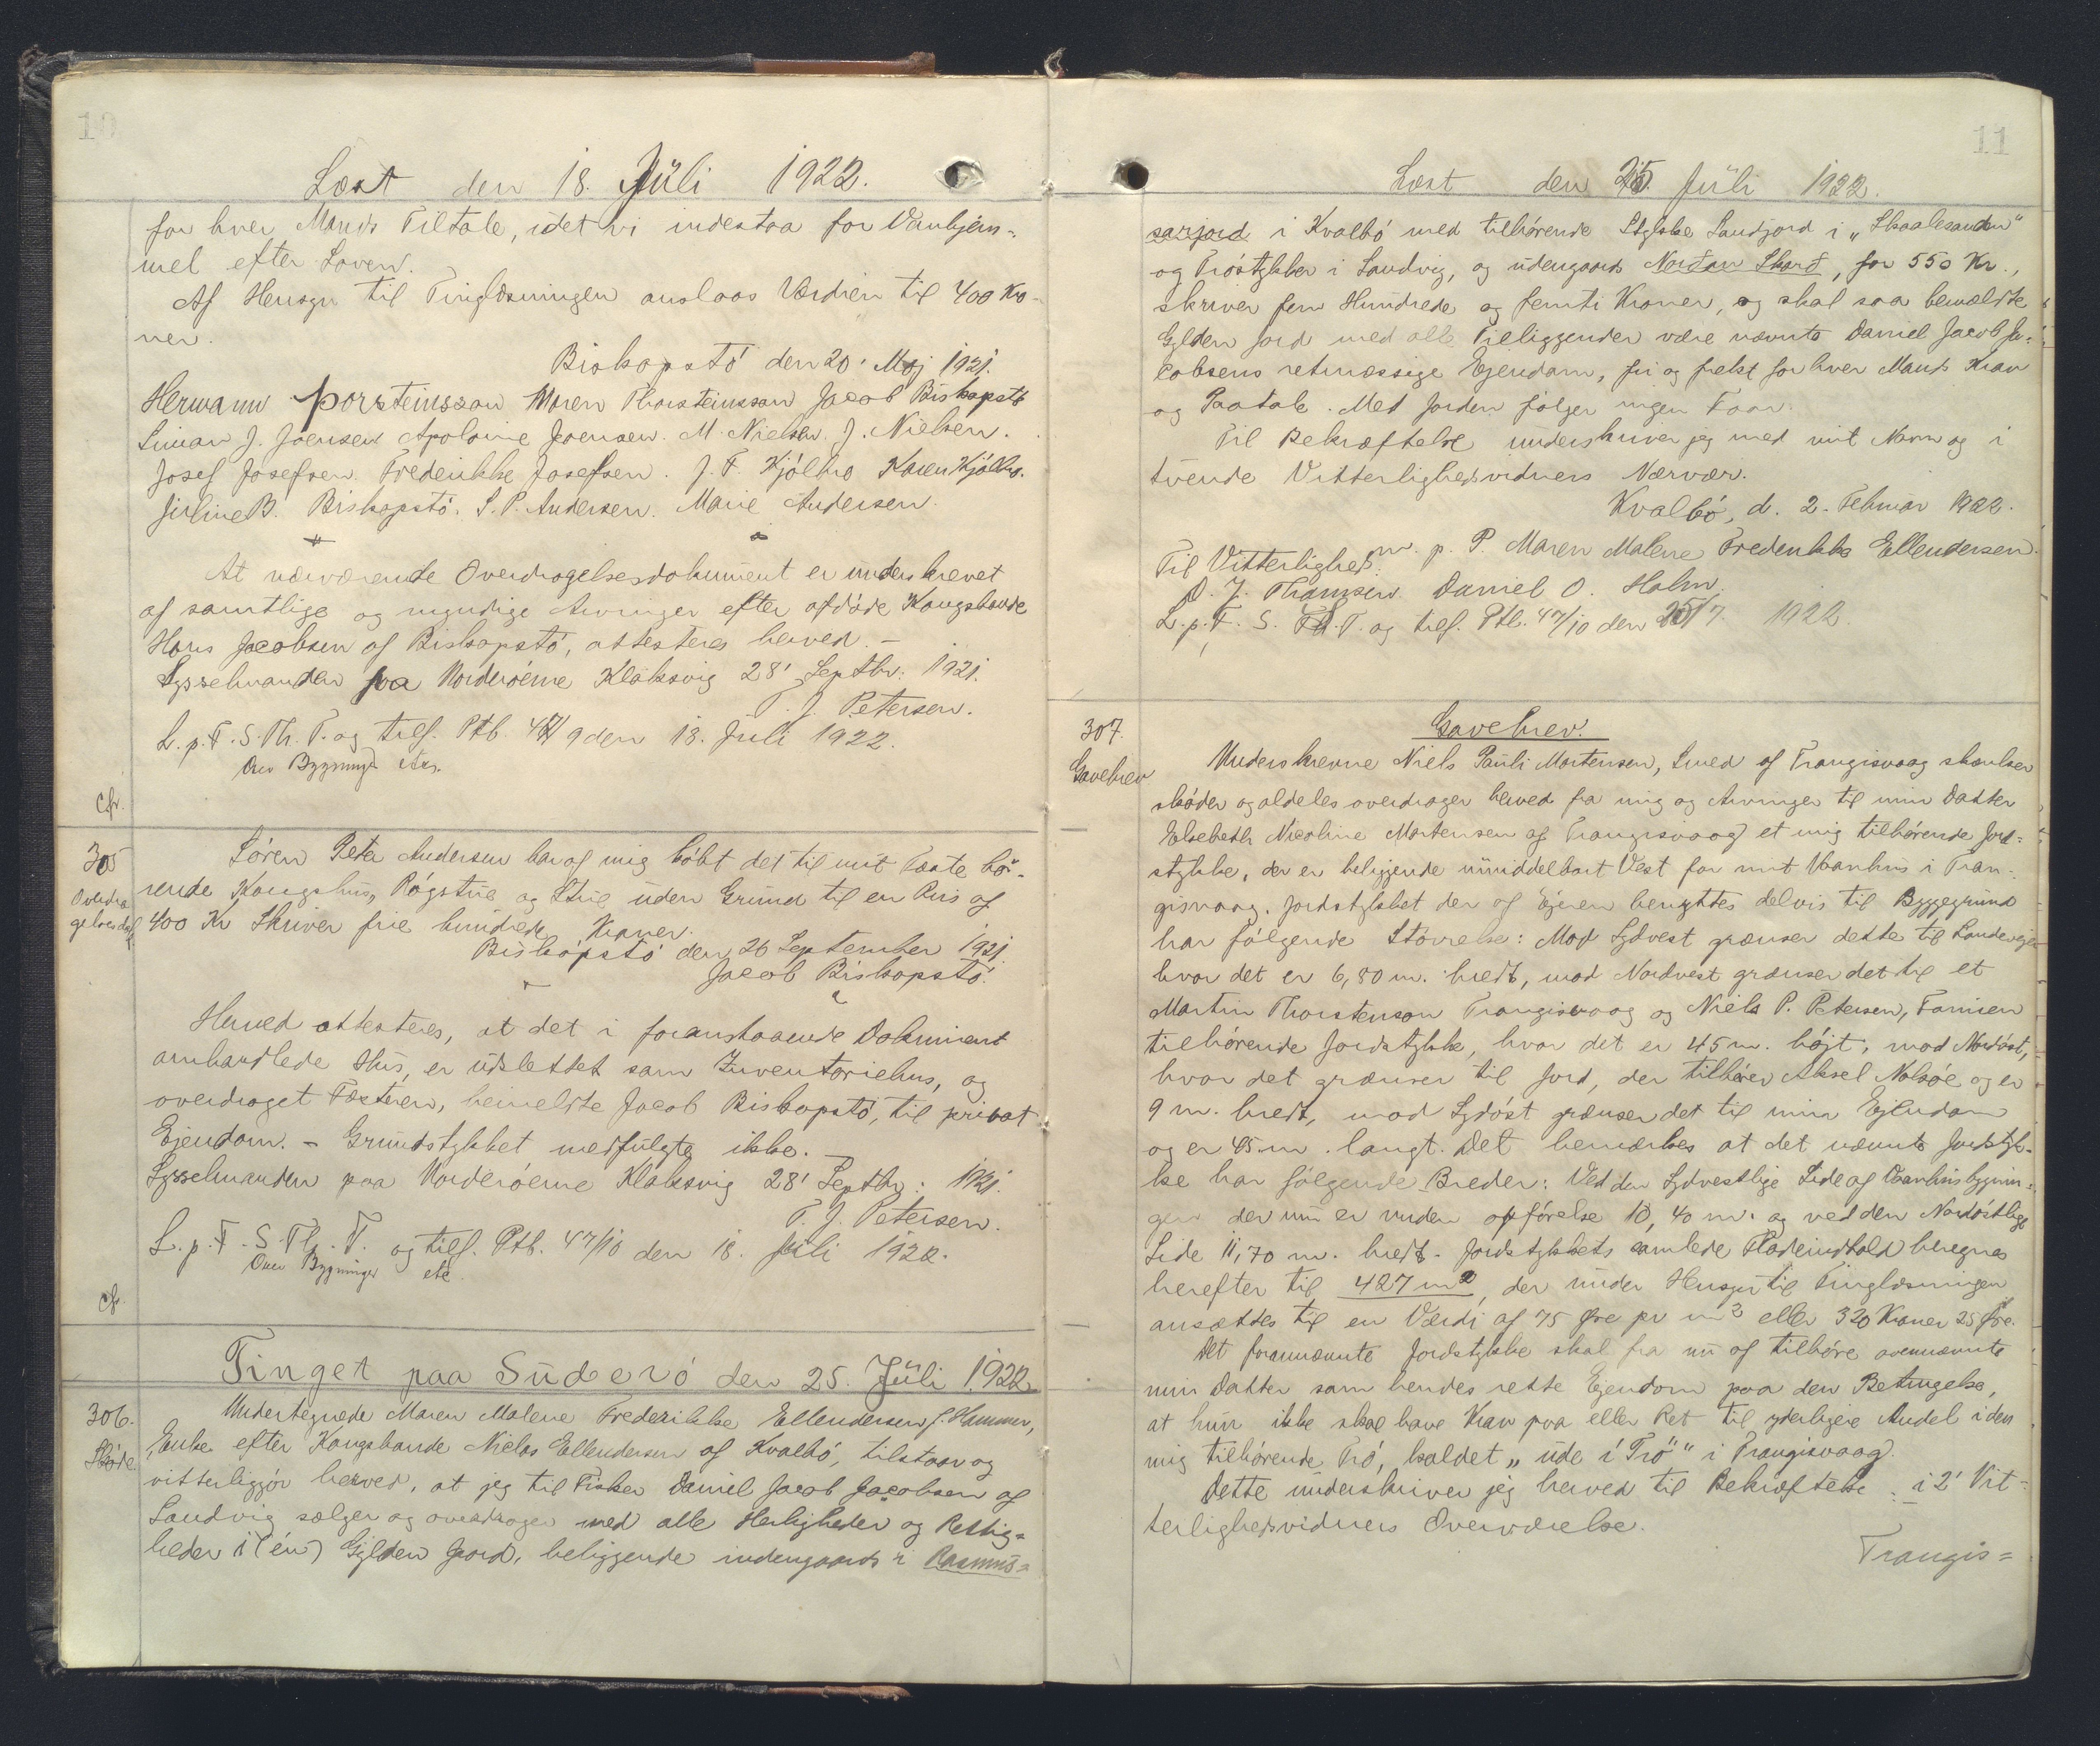 10
Læst den 18. Jüli 1922.
for hver Mands Tiltale, idet vi indestaa for Vanhjem-
mel efter Loven.
Af Hensyn til Tinglæsningen anslaas Værdien til 400 Kro-
ner.
Biskopstö den 20' Maj 1921.
Hermann Þorsteinsson Maren Thorsteinsson Jacob Biskopstö
Simon J. Joensen Apoloine Joensen. M. Nielsen. J. Nielsen.
Josef Josefsen. Frederikke Josefsen. J. F. Kjölbro Karen Kjölbro.
B. Biskopstö. S. P. Andersen. Marie Andersen.
At nærværende Overdragelsesdokument er ünderskrevet
af samtlige og myndige Arvinger efter afdöde Kongsbonde
Hans Jacobsen af Biskopstö, attesteres herved. –
Sysselmanden paa Norderöerne Klaksvig 28' Septbr: 1921.
T. J. Petersen.
L. p. F. S. Th. T. og tilf. Ptb. 47/9 den 18. Juli 1922.
Over Bygninger etc.
Cfr.
305
Overdra
gelsesdok
Sören Peter Andersen har af mig köbt det til mit Fæste hö-
rende Kongshüs, Rögstüe og Stüe üden Grund til en Pris af
400 Kr Skriver fire hündrede Kroner.
Biskopstö den 26 September 1921.
Jacob Biskopstö.
Herved attesteres, at det i foranstaaende Dokument
omhandlede Hüs, er üdslettet som Inventariehus, og
overdraget Fæsteren, bemeldte Jacob Biskopstö, til privat
Ejendom. – Gründstykket medfülgte ikke. –
Sysselmanden paa Norderöerne Klaksvig 28' Septbr: 1921.
T. J. Petersen.
L. p. F. S. Th. T. og tilf. Ptb. 47/10 den 18. Jüli 1922.
Over Bygninger etc.
Cfr.
Tinget paa Süderö den 25. Jüli 1922.
306.
Sköde
Undertegnede Maren Malene Frederikke Ellendersen f. Hammer,
Enke efter Kongsbonde Niclas Ellendersen af Kvalbö, tilstaar og
vitterliggjör herved, at jeg til Fisker Daniel Jacob Jacobsen af
Sandvig sælger og overdrager med alle Herligheder og Rettig=
heder 1 (én) Gylden Jord, beliggende indengaards i Rasmüs=
11
Læst den 25. Jüli 1922.
sarjord i Kvalbö med tilhörende Stykke Sandjord i „Skaalesanden“
og Tröstykker i Sandvig, og üdengaards Norðan Skarð, for 550 Kr.,
skriver fem Hündrede og femti Kroner, og skal saa bemældte
Gylden Jord med alle Tilliggender være nævnte Daniel Jacob Ja-
cobsens retmæssige Ejendom, fri og frelst for hver Mands Krav
og Paatale. Med Jorden fölger ingen Faar.
Til Bekræftelse underskriver jeg med mit Navn og i
tvende Vitterlighedsvidners Nærvær.
Kvalbö, d. 2. Februar 1922.
m. p. P. Maren Malene Frederikke Ellendersen.
Til Vitterlighed:
D. J. Thomsen. Daniel O. Holm.
L. p. F. S. Th. T. og tilf. Ptb. 47/10 den 25/7. 1922.
307.
Gavebrev
Gavebrev.
Underskrevne Niels Paüli Mortensen, Smed af Trangisvaag skænker
sköder og aldeles overdrager herved fra mig og Arvinger til min Datter
Elsebeth Nicoline Mortensen af Trangisvaag et mig tilhörende Jord-
stykke, der er beliggende ümiddelbart Vest for mit Vaanhüs i Tran-
gisvaag. Jordstykket der af Ejeren benyttes delvis til Byggegründ
har fölgende Större​lse: Mod Sydvest grænser dette til Landevejen
hvor det er 6,80 m. bredt, mod Nordvest grænser det til et
Martin Thorstenson Trangisvaag og Niels P. Petersen, Famien
tilhörende Jordstykke, hvor det er 45 m. höjt, mod Nordöst,
hvor det grænser til Jord, der tilhörer Aksel Nolsøe og er
9 m. bredt, mod Sydöst grænser det til min Ejendom
og er 45 m. langt. Det bemærkes at det nævnte Jordstyk-
ke har fölgende Breder: Ved den Sydvestlige Side af Vaanhüsbygnin=
gen der nü er ünder opförelse 10,40 m. og ved den Nordöstlige
Side 11,70 m. bredt. Jordstykkets samlede Fladeindhold beregnes
herefter til 427 m², der ünder Hensyn til Tinglæsningen
ansættes til en Værdi af 75 Øre pr m² eller 320 Kroner 25 Øre.
Det forannævnte Jordstykke skal fra nü af tilhöre ovennævnte
min Datter som hendes rette Ejendom paa den Betingelse,
at hün ikke skal have Krav paa eller Ret til yderligere Andel i den
mig tilhörende Trö, kaldet „üde í Trö“ i Trangisvaag.
Dette ünderskriver jeg herved til Bekræftelse i 2' Vit=
terlighedsvidners Overværelse.
Trangis=